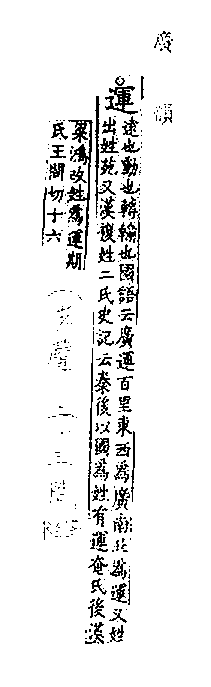 廣韻
運
遠也動也轉輸也國語云廣運百里東西為廣南北為運又姓
出姓苑又漢複姓二氏史記云秦後以國為姓有運奄氏後漢
梁鴻改姓為運期
氏王問切十六